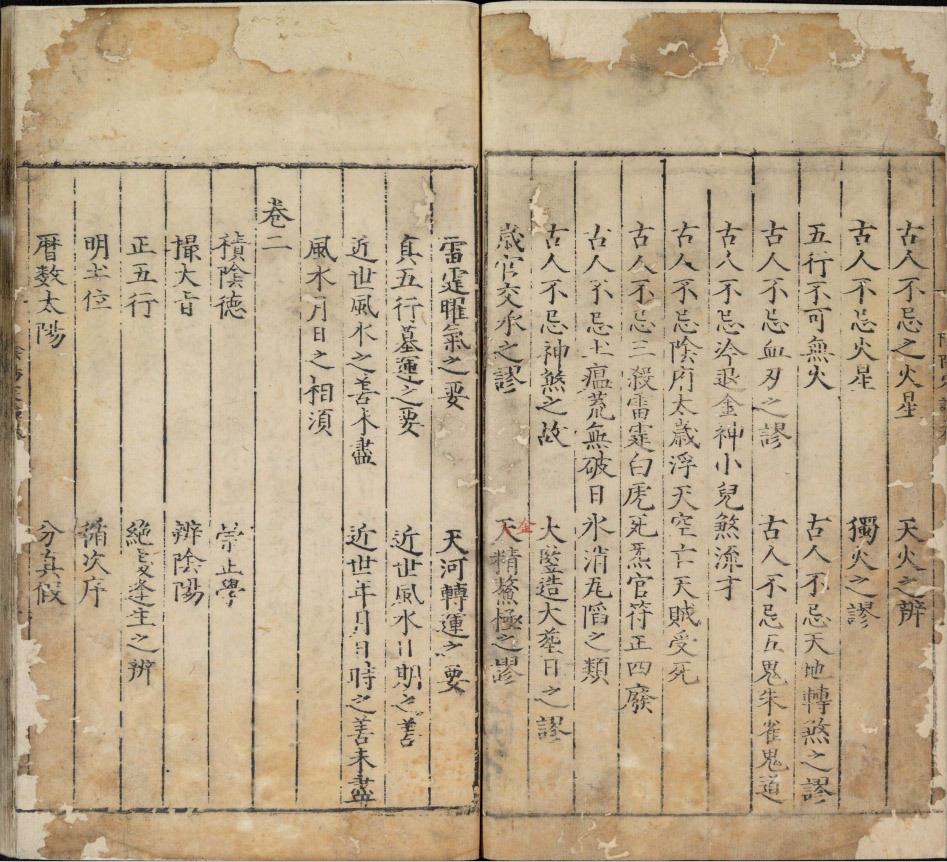 古人不忌之火星 天火之辯
古人不忌火星 獨火之謬
五行不可無火 古人不忌天地轉煞之謬
古人不忌血刃之謬 古人不忌五鬼朱雀鬼道
古人不忌冷退金神小兒煞流才
古人不忌陰府太歲浮天空亡天賊受死
古人不忌三殺雷霆白虎死炁官符正四廢
古人不忌土瘟荒無破日氷消瓦陷之類
古人不忌神煞之故 大監造大塟日之謬
歲官交承之謬 天金精鰲極之謬
雷霆曜氣之要 天河轉運之要
真五行墓運之要 近世風水日期之善
近世風水之善未盡 近世年月日時之善未盡
風水月日之相須
卷二
積陰德 崇正學
撮大旨 辨陰陽
正五行 絶處逢生之辨
明土位 循次序
曆數太陽 分真假